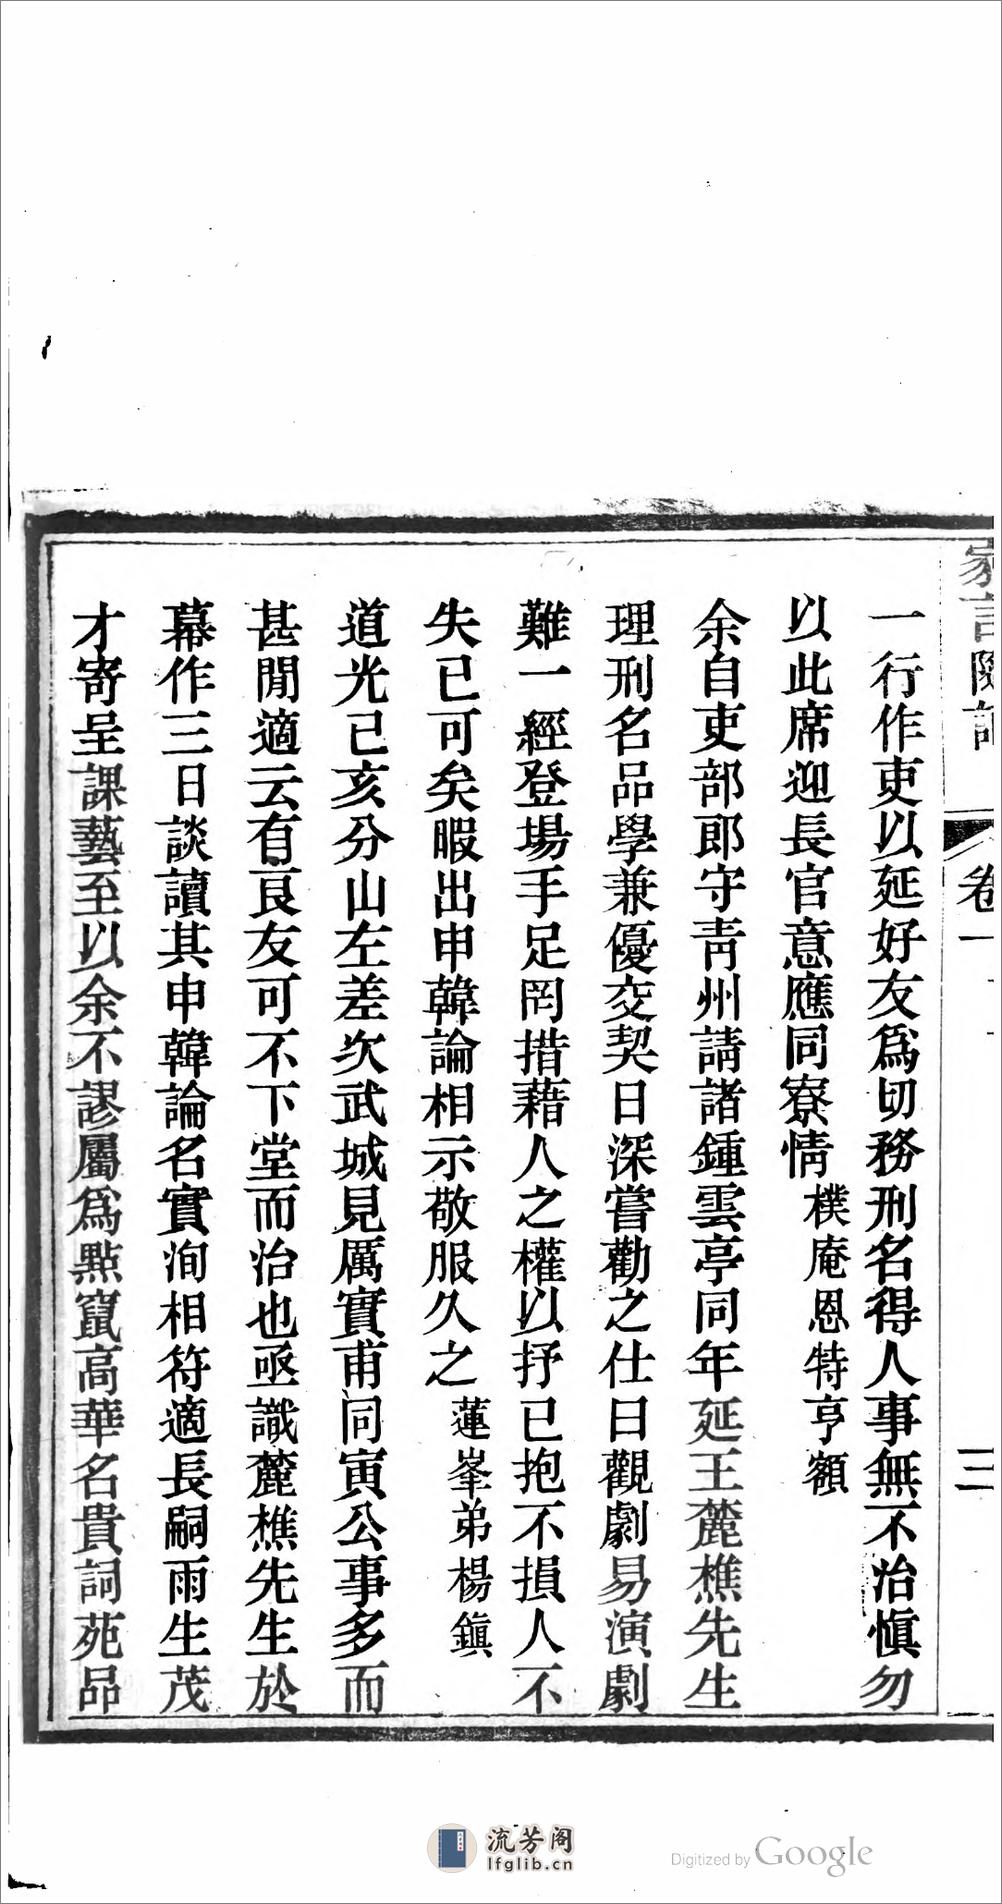 家言隨記
卷一
三
一行作吏以延好友爲切務刑名得人事無不治愼勿
以此席迎長官意應同寮情 樸庵恩特亨額
余自吏部郎守靑州請諸鍾雲亭同年延王麓樵先生
理刑名品學兼優交契日深嘗勸之仕曰觀劇易演劇
難一經登場手足罔措藉人之權以抒已抱不損人不
失已可矣暇出申韓論相示敬服久之 蓮峯弟楊鎭
道光已亥分山左差次武城見厲實甫同寅公事多而
甚閒適云有良友可不下堂而治也亟識麓樵先生於
幕作三日談讀其申韓論名實洵相符適長嗣雨生茂
才寄呈課藝至以余不謬屬爲點竄高華名貴詞苑品
流芳阁
lfglib.cn
Digitized by Google